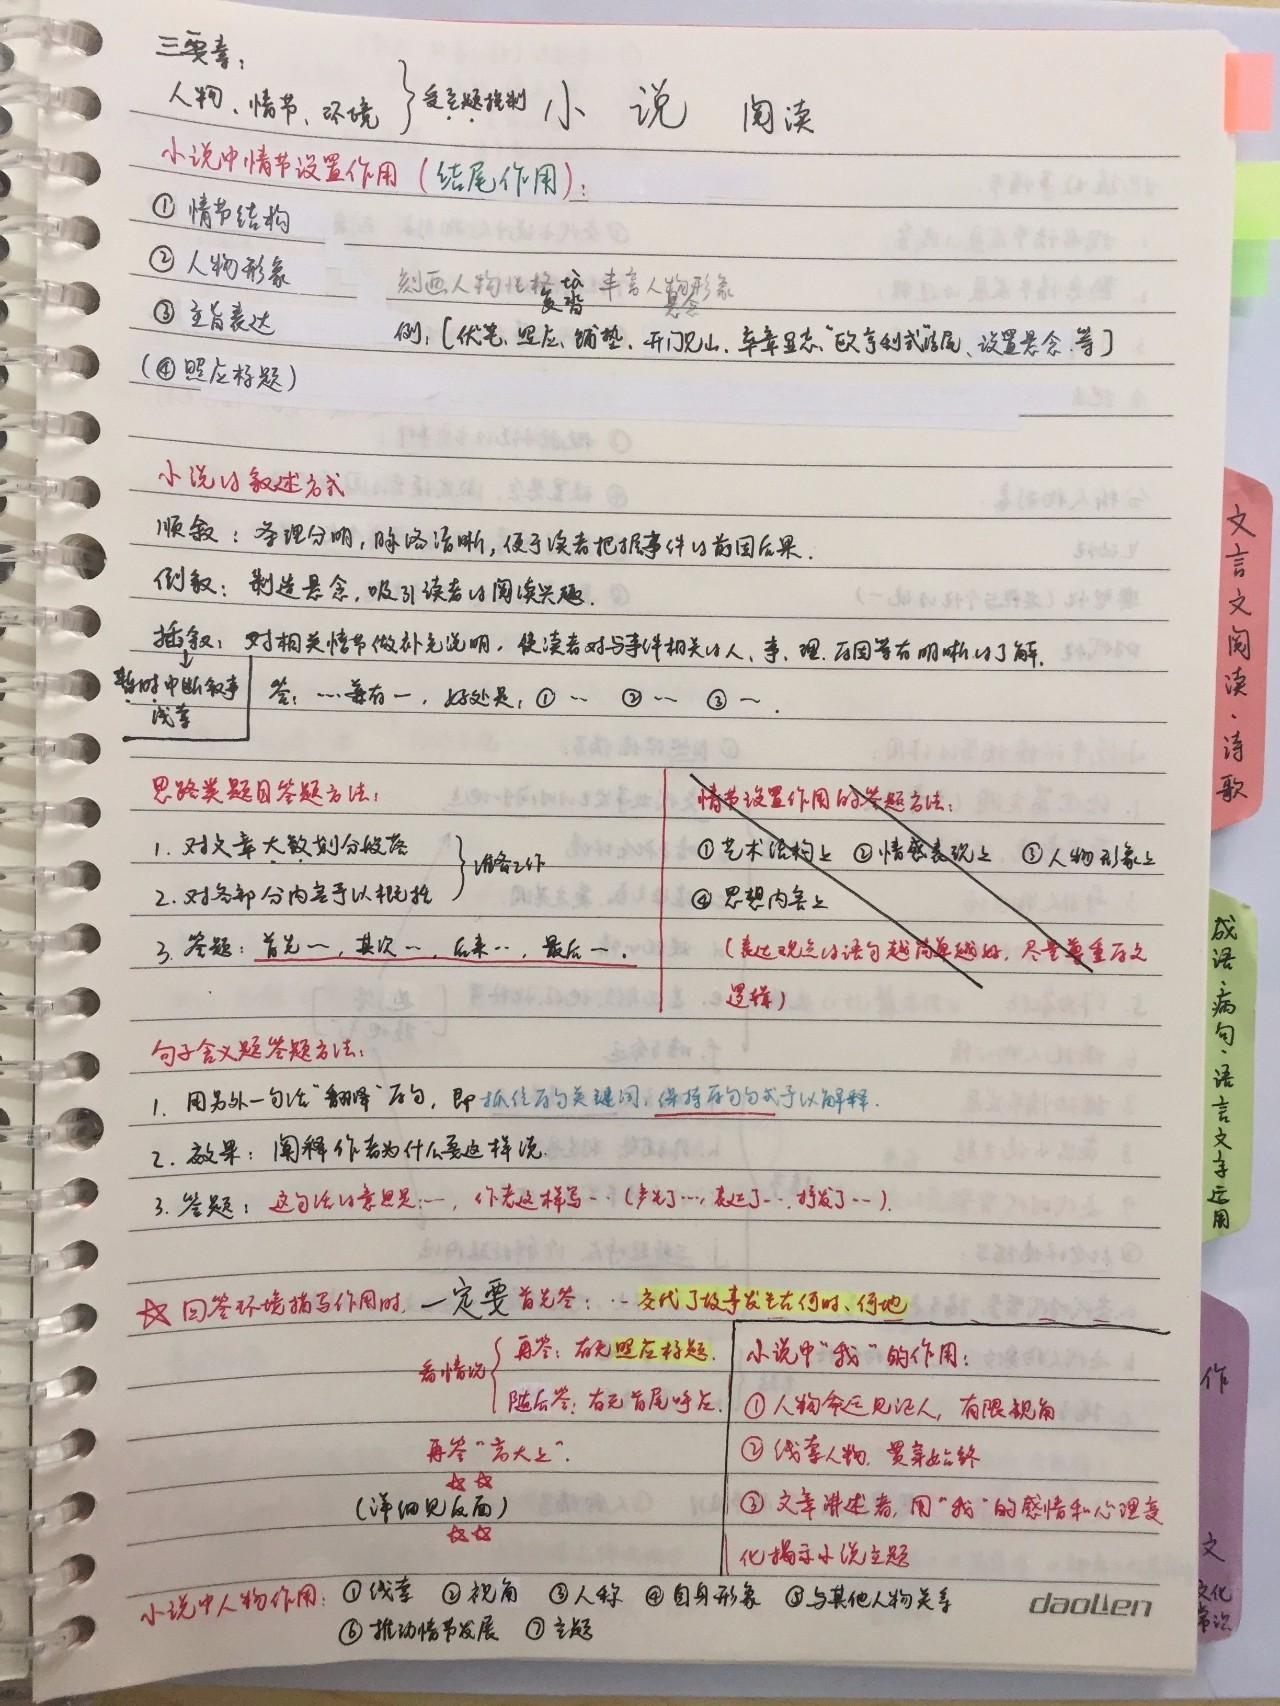 三要素：
人物、情节、环境 } 受主题控制
小说 阅读
小说中情节设置作用（结尾作用）：
① 情节结构
② 人物形象 刻画人物性格 丰富人物形象
③ 主旨表达 例：[伏笔、照应、铺垫、开门见山、卒章显志、“欧亨利式”结尾、设置悬念、等]
（④ 照应标题）
小说的叙述方式
顺叙：条理分明，脉络清晰，便于读者把握事件的前因后果.
倒叙：制造悬念，吸引读者的阅读兴趣.
插叙：对相关情节做补充说明，使读者对与事件相关的人、事、理、原因等有明晰的了解.
暂时中断叙事
线索
答：…兼有一，好处是：①… ②… ③….
思路类题目答题方法：
1. 对文章大致划分段落
2. 对各部分内容予以概括
} 准备工作
3. 答题：首先…，其次…，后来…，最后….
情节设置作用的答题方法：
① 艺术结构上 ② 情感表现上 ③ 人物形象上
④ 思想内容上
（表达观点的语句越简单越好，尽量尊重原文
逻辑）
句子含义题答题方法：
1. 用另外一句话“翻译”原句，即抓住原句关键词，保持原句句式予以解释.
2. 效果：阐释作者为什么要这样说.
3. 答题：这句话的意思是…，作者这样写…（突出了…，表达了…，抒发了…）.
☆ 回答环境描写作用时，一定要首先答：…交代了故事发生在何时、何地
看情况 { 再答：有无照应标题.
随后答：有无首尾呼应.
再答“高大上”.
☆☆
（详细见反面）
☆☆
小说中“我”的作用：
① 人物命运见证人，有限视角
② 线索人物，贯穿始终
③ 文章讲述者，用“我”的感情和心理变
化揭示小说主题
小说中人物作用：① 线索 ② 视角 ③ 人称 ④ 自身形象 ⑤ 与其他人物关系
⑥ 推动情节发展 ⑦ 主题
daolien
文言文阅读·诗歌
成语·病句·语言文字运用
作文
文化常识